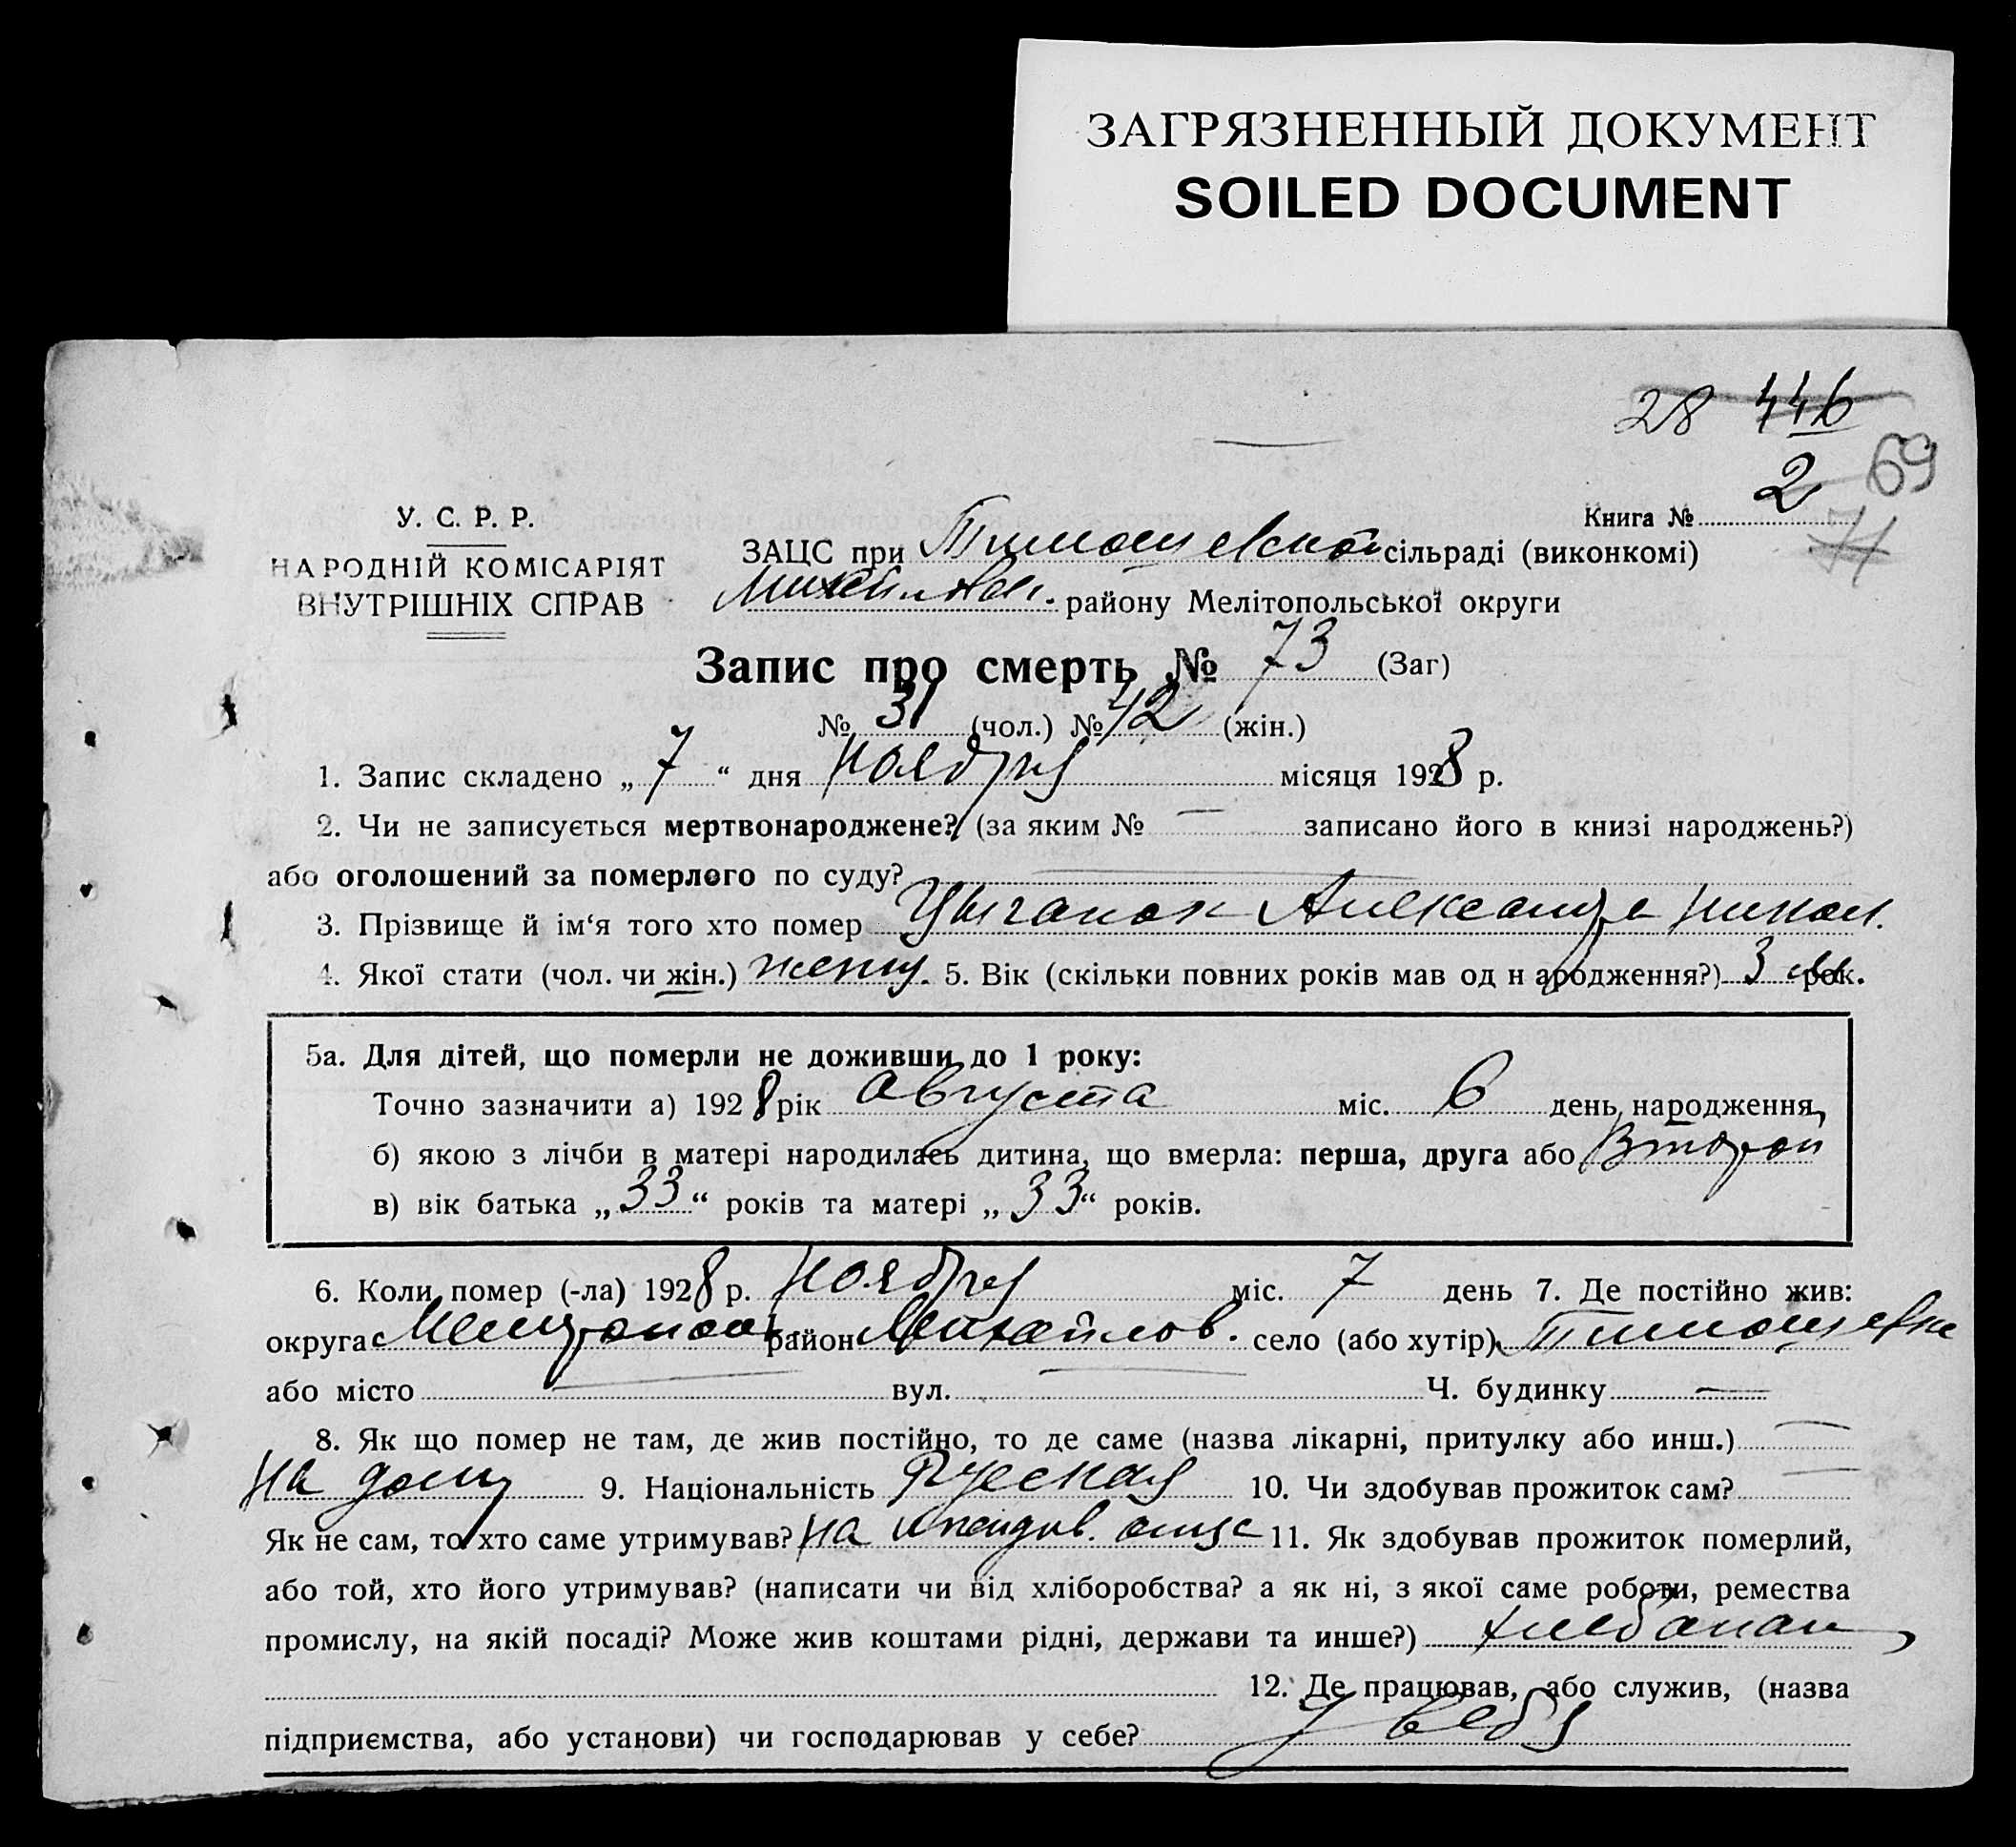 ЗАГРЯЗНЕННЫЙ ДОКУМЕНТ
SOILED DOCUMENT
28 446
69
Книга № 2
71
У. С. Р. Р.
НАРОДНІЙ КОМІСАРІЯТ
ВНУТРІШНІХ СПРАВ
ЗАЦС при Тимошевской сільраді (виконкомі)
Михайлов. району Мелітопольської округи
Запис про смерть № 73 (Заг)
№ 31 (чол.) № 42 (жін.)
1. Запис складено „ 7 “ дня Ноября місяця 1928 р.
2. Чи не записується мертвонароджене? (за яким № — записано його в книзі народжень?)
або оголошений за померлого по суду?
3. Прізвище й ім‘я того хто помер Цыганок Александра Никол.
4. Якої стати (чол. чи жін.) 5. Вік (скільки повних років мав од народження?) 3 рок.
5а. Для дітей, що померли не доживши до 1 року:
Точно зазначити а) 1928 рік Августа міс. 6 день народження,
б) якою з лічби в матері народилась дитина, що вмерла: перша, друга або Второй
в) вік батька „ 33 “ років та матері „ 33 “ років.
6. Коли помер (-ла) 1928 р. Ноября міс. 7 день 7. Де постійно жив:
округа Мелитопол район Михайлов. село (або хутір) Тимошевка
або місто вул. Ч. будинку —
8. Як що помер не там, де жив постійно, то де саме (назва лікарні, притулку або инш.)
На дому 9. Національність Русская 10. Чи здобував прожиток сам?
Як не сам, то хто саме утримував? На иждив. отца 11. Як здобував прожиток померлий,
або той, хто його утримував? (написати чи від хліборобства? а як ні, з якої саме роботи, ремества
промислу, на якій посаді? Може жив коштами рідні, держави та инше?)
12. Де працював, або служив, (назва
підприємства, або установи) чи господарював у себе? У себя